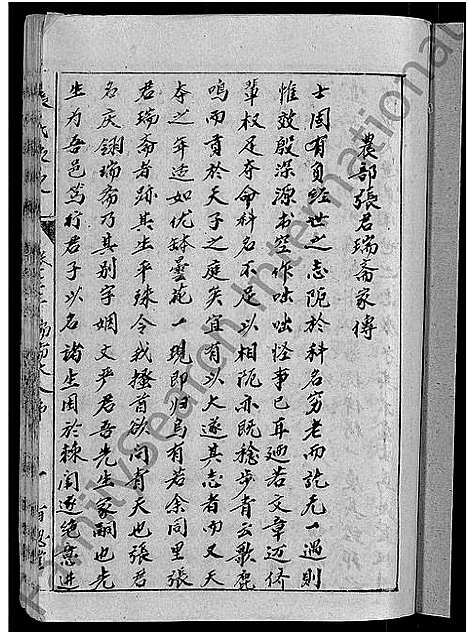 農部張君瑞斋家傳
士固有負經世之志阨於科名穷老而訖无一遇則
惟效殷深源书空作咄咄怪事已耳廼若文章迈侪
輩权足夺命科名不足以相阨亦既稔步青云歌鹿
鳴而貢於天子之庭矣宜有以大遂其志者而又天
夺之年迳如优钵曇花一現即归乌有若余同里張
君瑞斋者跡其生平殊令我搔首欲问有天也張君
名庆翎瑞斋乃其别字姻文严君吾先生家嗣也先
生为吾邑篤行君子以名诸生困於棘闱遂绝意进
張氏
一
百忍堂
FamilySearch International